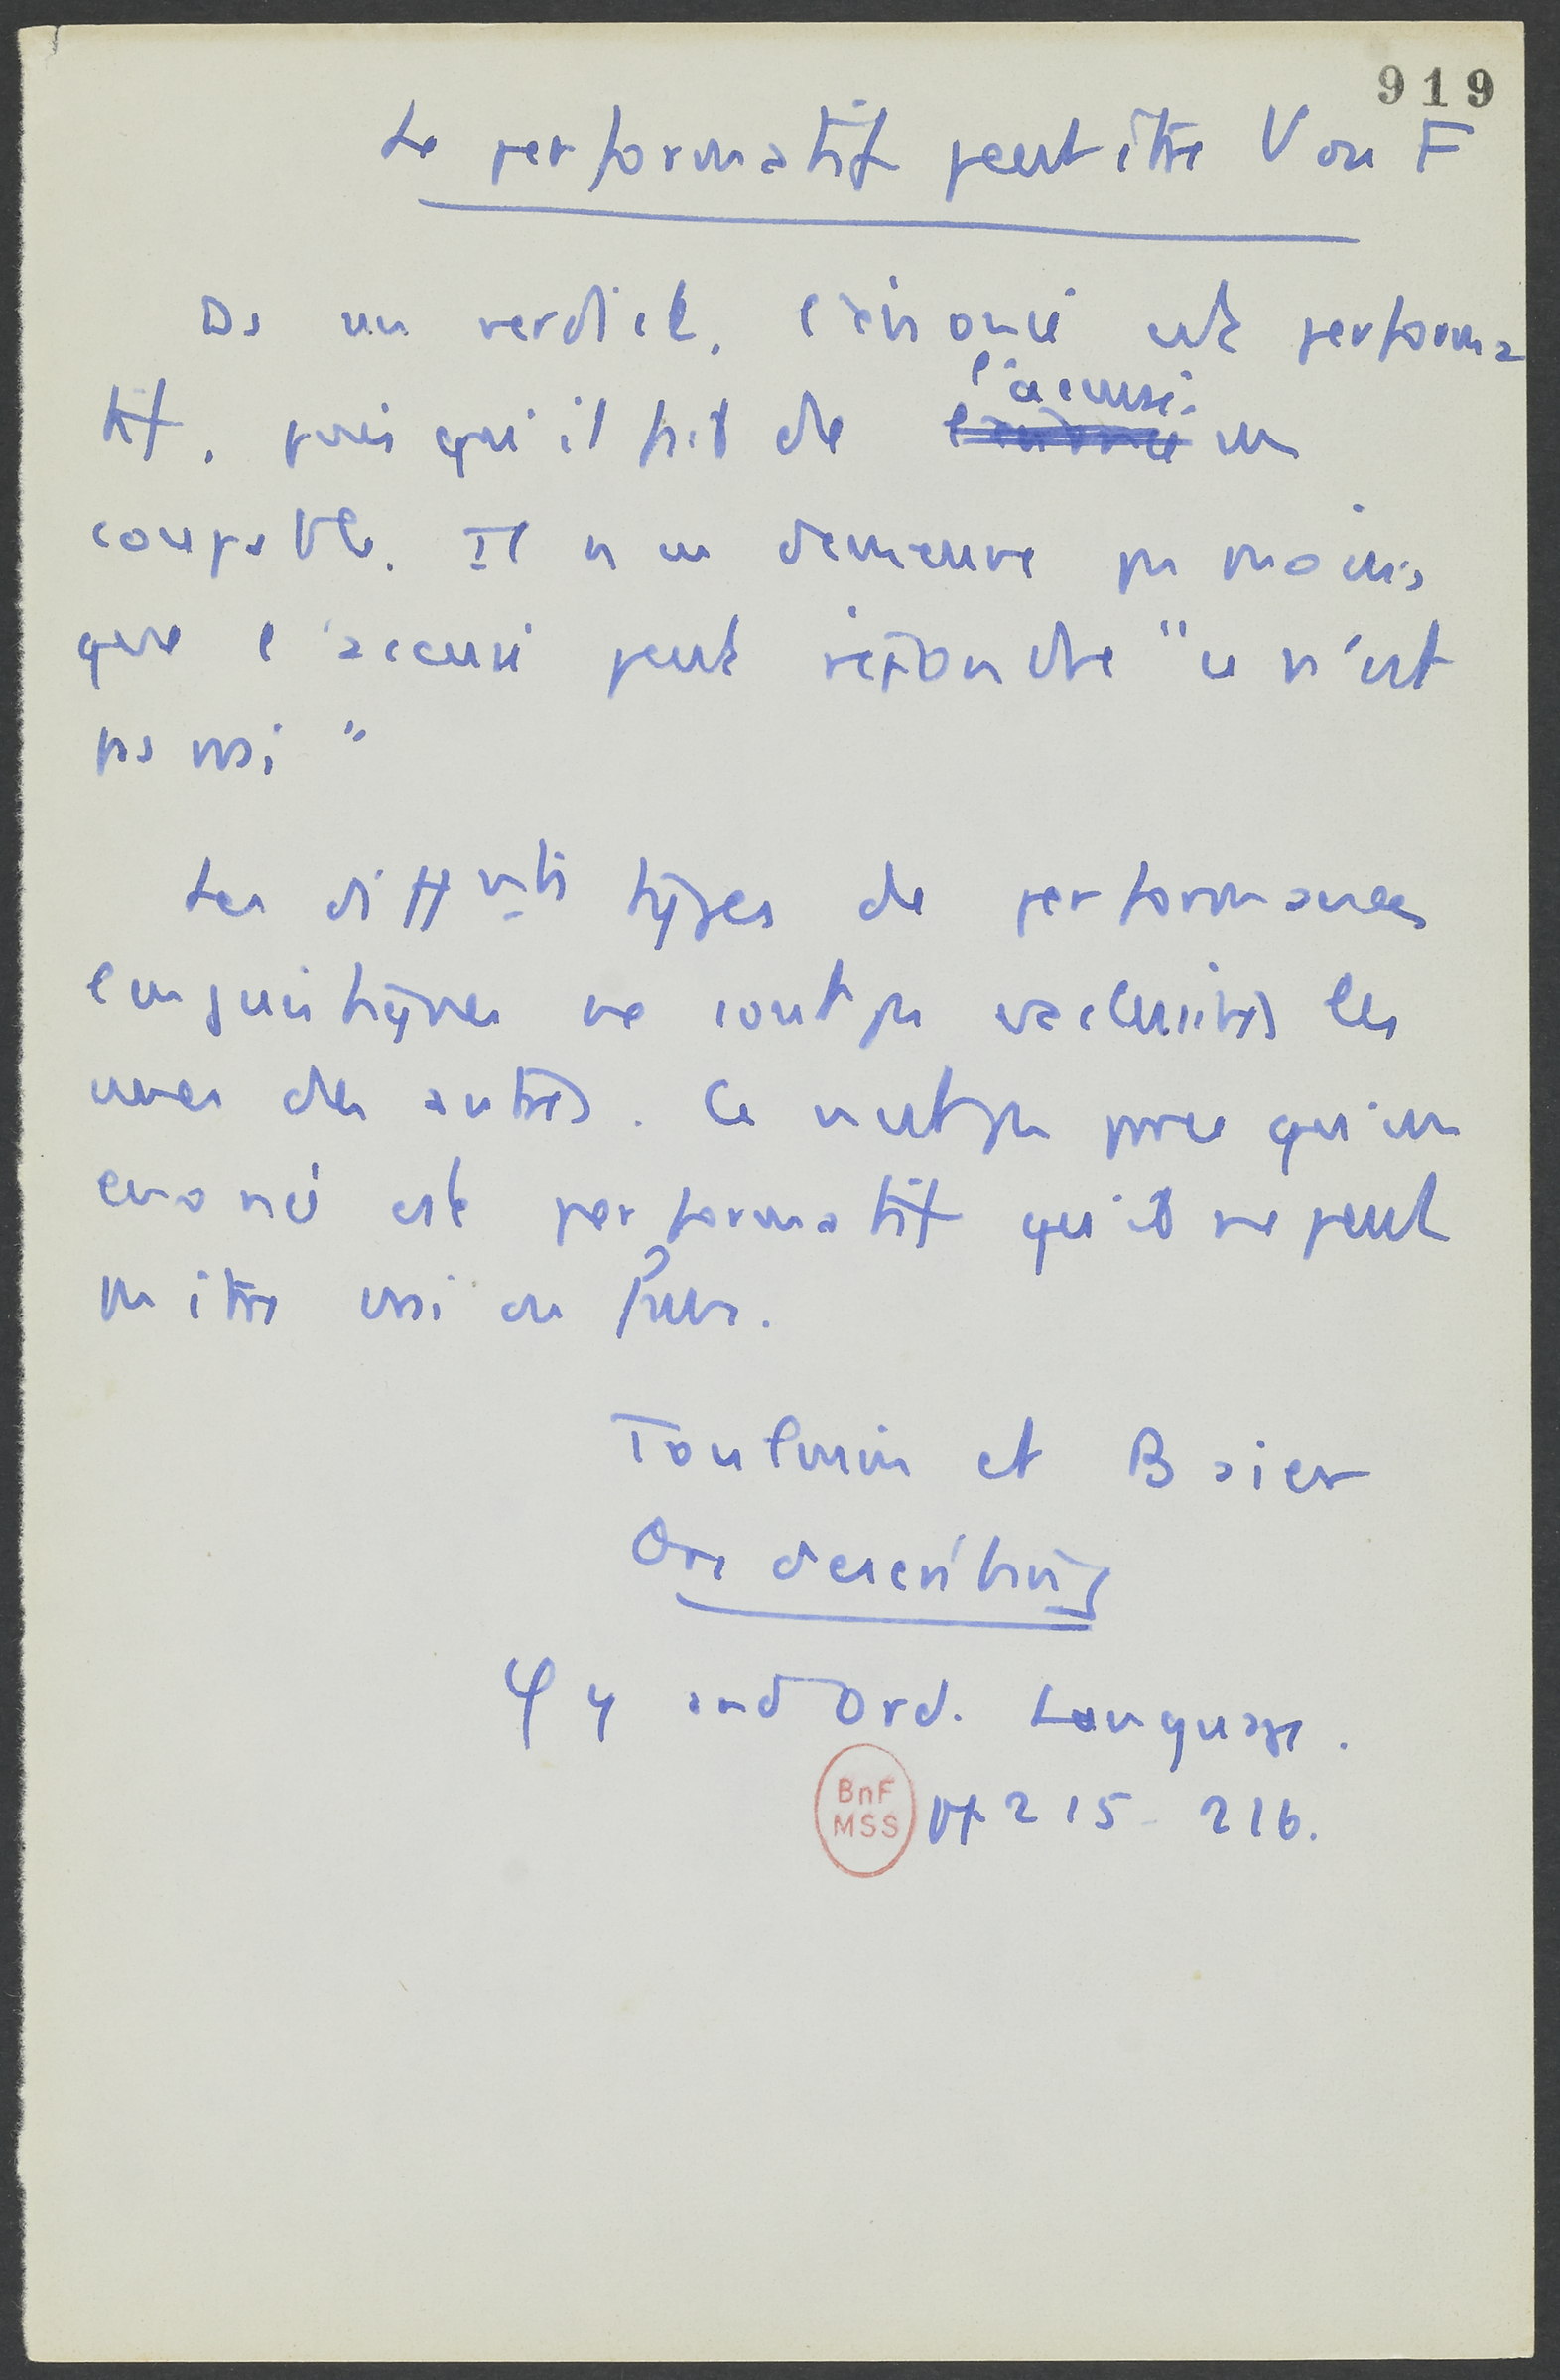 919
Le performatif peut être V ou F
Ds un verdict, l'énoncé est performa
tif, puisqu'il fait de l'accusé un
coupable. Il n'en demeure pas moins
que l'accusé peut répondre "ce n'est
pas vrai"
Les diffrnts types de performances
linguistiques ne sont pas exclusives les
unes des autres. Ce n'est pas parce qu'un
énoncé est performatif qu'il ne peut
pas être vrai ou faux.
Toulmin et Baier
On describing
φy and Ord. Language.
BnF
MSS
pp 215-216.